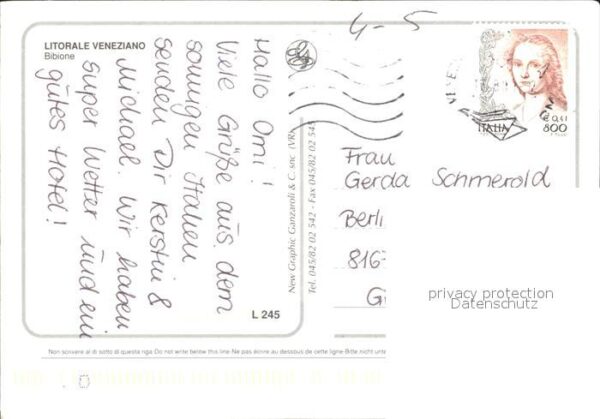 LITORALE VENEZIANO
Bibione
Hallo Omi!
Viele Grüße aus dem
sonnigen Italien
senden Dir Kerstin &
Michael. Wir haben
super Wetter und ein
gutes Hotel!
L 245
New Graphic Ganzaroli & C. snc (VR)
Tel. 045/82 02 542 - Fax 045/82 02 545
4-5
ITALIA
€ 0,41
800
Frau
Gerda Schmerold
Berli
816
G
privacy protection
Datenschutz
Non scrivere al di sotto di questa riga Do not write below this line Ne pas écrire au dessous de cette ligne Bitte nicht unte